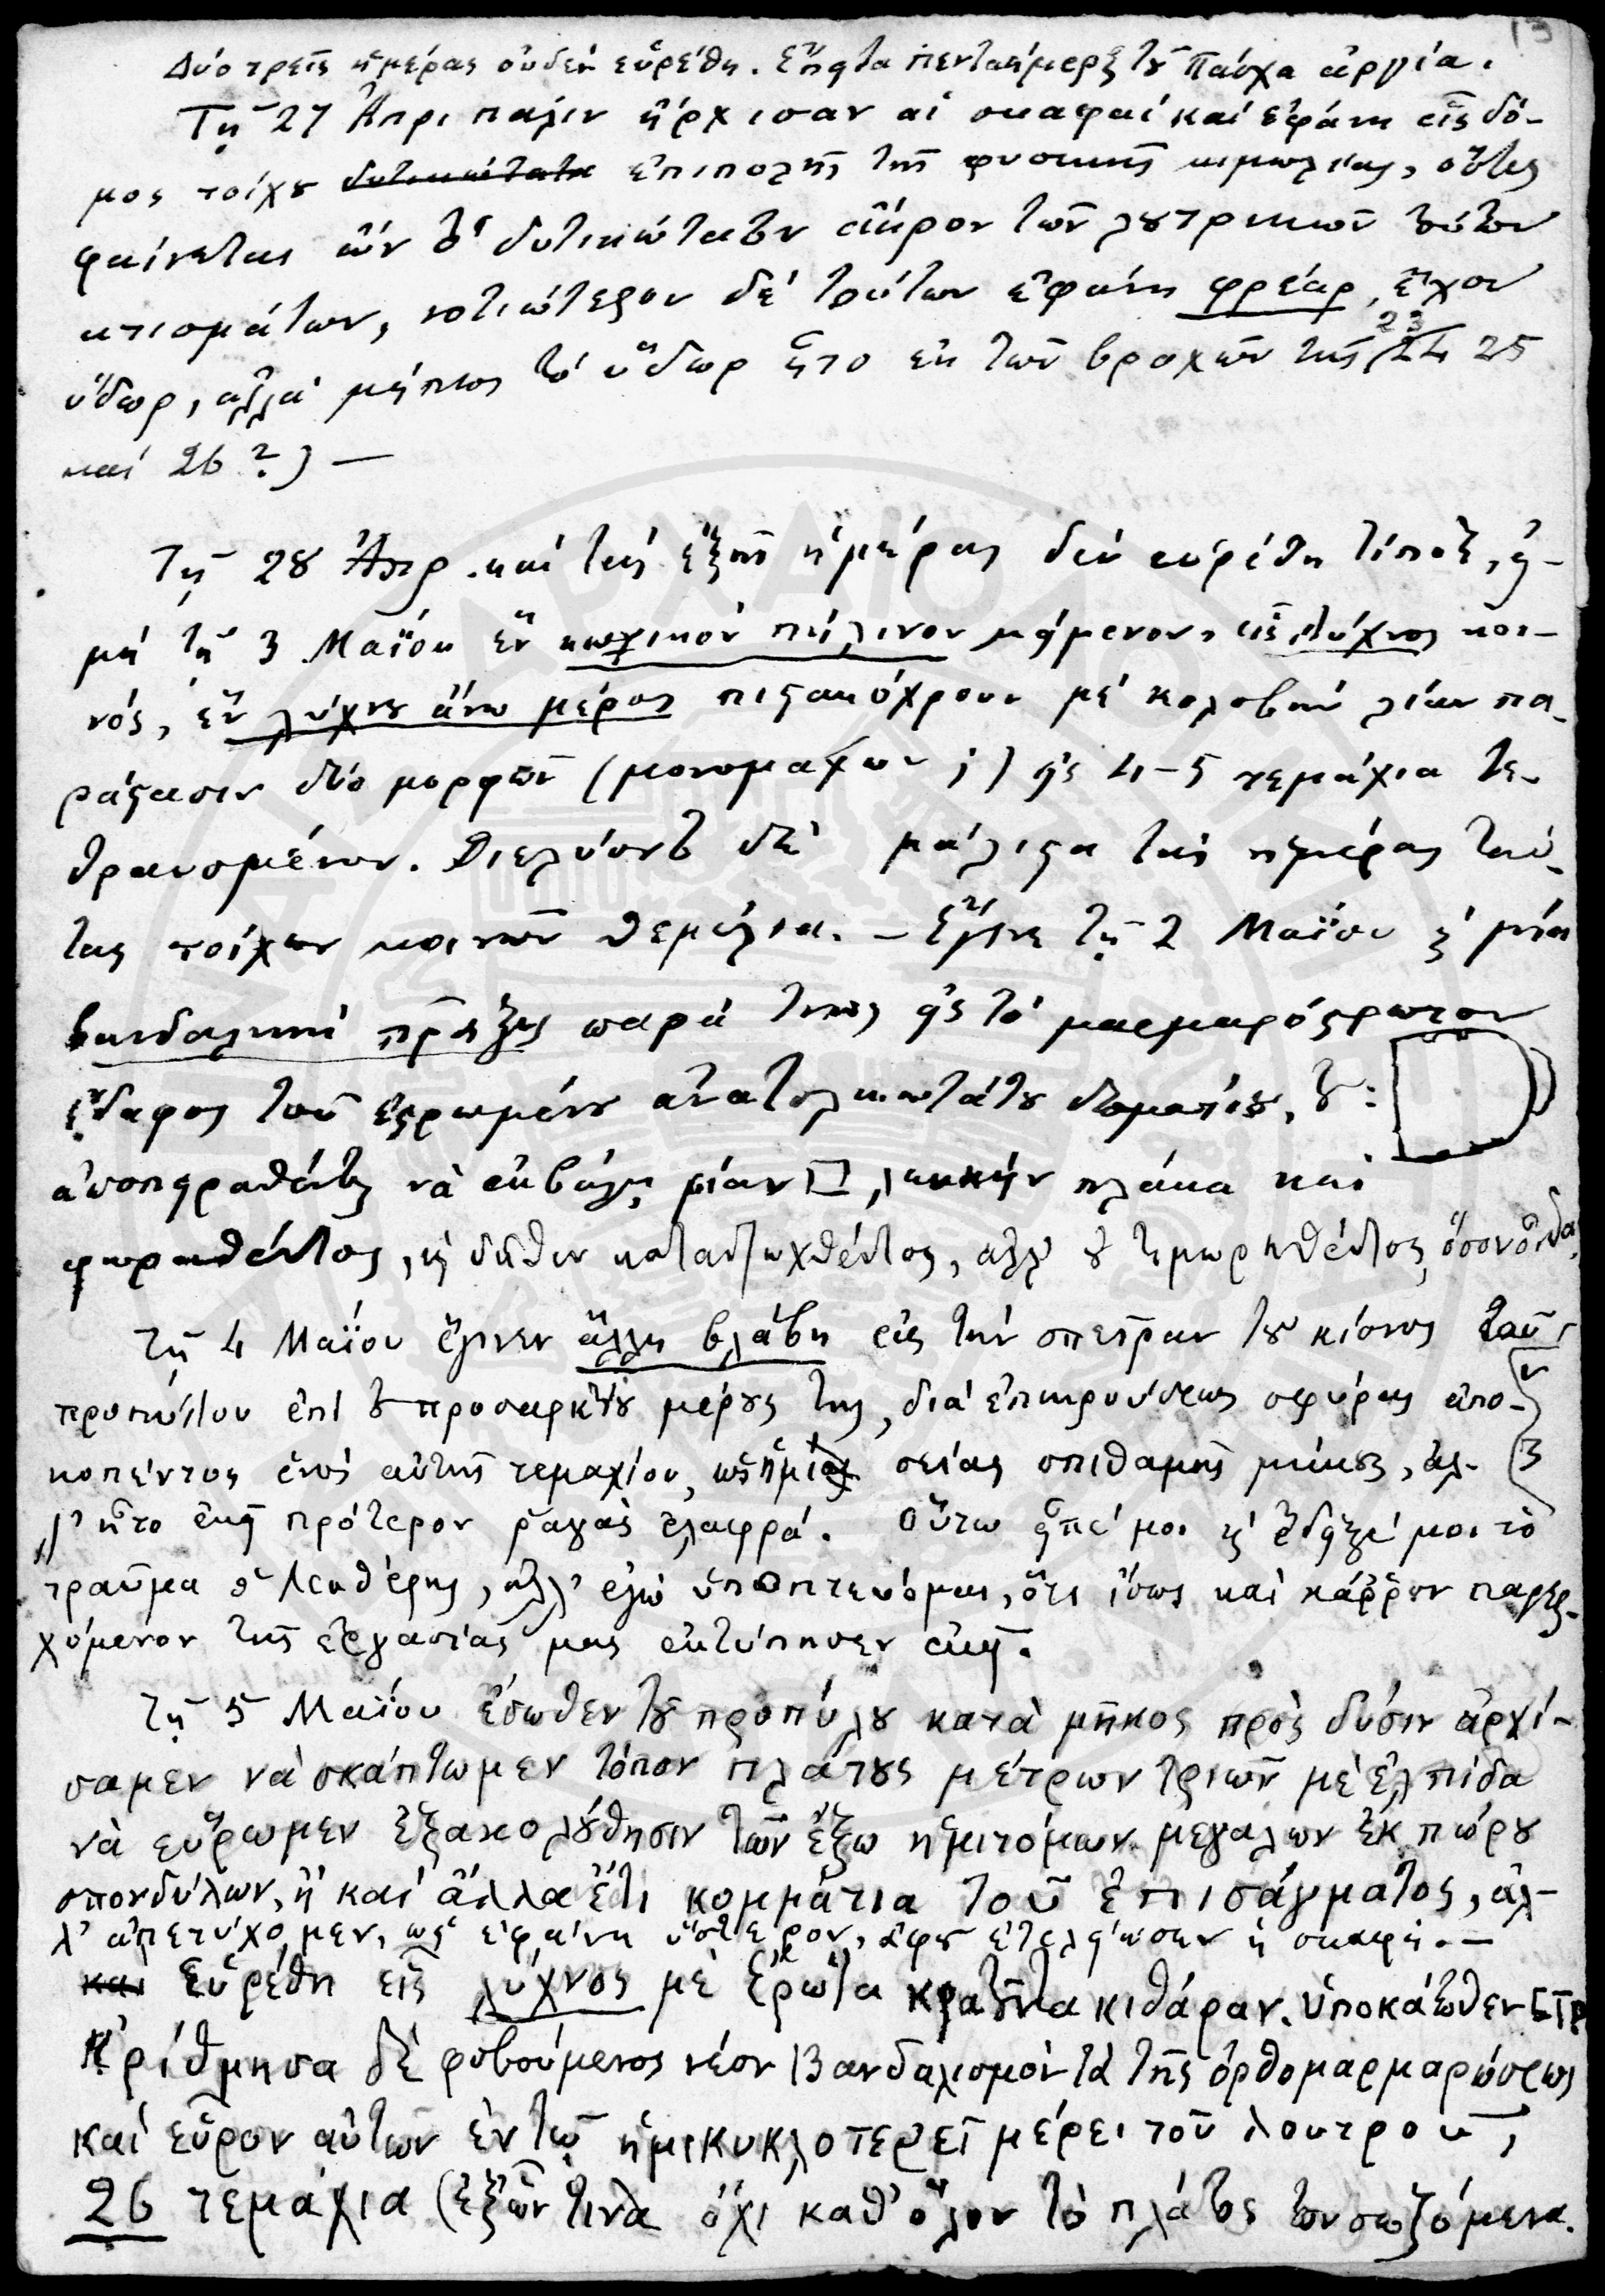 13
Δύο τρεῖς ἡμέρας οὐδὲν εὑρέθη. Εἶτα πενθήμερος τοῦ Πάσχα ἀργία.
Τῇ 27 Ἀπρι πάλιν ἤρχισαν αἱ σκαφαί καί ἐφάνη εἷς δό-
μος τοίχου δυτικώτατα ἐπιπολῆς τῆς φυσικῆς κιμωλίας, ὅστις
φαίνεται ὤν τό δυτικώτατον ἄκρον τῶν λουτρικῶν τούτων
κτισμάτων, νοτιώτερον δέ τούτων ἐφάνη φρέαρ, ἔχον
ὕδωρ, ἀλλά μήπως τό ὕδωρ ἦτο ἐκ τῶν βροχῶν τῆς 23 24 25
καί 26?) —
Τῇ 28 Ἀπρ. καί τάς ἑξῆς ἡμέρας δέν εὑρέθη τίποτε, εἰ-
μή τῇ 3 Μαΐου ἕν κωνικόν πήλινον κείμενον, εἷς λύχνος κοι-
νός, ἕν λύχνου ἄνω μέρος πιστακόχρουν μέ κολοβήν λίαν πα-
ράστασιν δύο μορφῶν (μονομάχων;) εἰς 4-5 τεμάχια τε-
θραυσμένον. Διελύοντο δέ μάλιστα τάς ἡμέρας ταύ-
τας τοίχων κοινῶν θεμέλια. — Ἔγινε τῇ 2 Μαΐου καί μία
βανδαλική πρᾶξις παρά τινος εἰς τό μαρμαρόστρωτον
ἔδαφος τοῦ ἐστρωμένου ἀνατολικωτάτου δωματίου, τοῦ:
ἀποπειραθέντος νὰ ἐκβάλῃ μίαν λευκήν πλάκα καί
φωραθέντος, καί δῆθεν καταδιωχθέντος, ἀλλ' οὐ τιμωρηθέντος, ὅσον οἶδα.
Τῇ 4 Μαΐου ἔγινεν ἄλλη βλάβη εἰς τήν σπεῖραν τοῦ κίονος τοῦ
προπύλου ἐπί τοῦ προσαρκτίου μέρους της, διά ἐπικρούσεως σφύρας ἀπο-
κοπέντος ἑνός αὐτῆς τεμαχίου, ὡς ἡμι σείας σπιθαμῆς μήκους, ἀλ-
λ' ἦτο ἐκεῖ πρότερον ῥαγὰς ἐλαφρά. Οὕτω εἶπέ μοι καί ἔδειξέ μοι τὸ
τραῦμα ὁ Λευθέρης, ἀλλ' ἐγώ ὑποπτεύομαι, ὅτι ἴσως καί κάρρον παρερ-
χόμενον τῆς ἐργασίας μας ἐκτύπησεν ἐκεῖ.
Τῇ 5 Μαΐου ἔσωθεν τοῦ προπύλου κατὰ μῆκος πρὸς δύσιν ἀρχί-
σαμεν νὰ σκάπτωμεν τόπον πλάτους μέτρων τριῶν μὲ ἐλπίδα
νὰ εὕρωμεν ἐξακολούθησιν τῶν ἔξω ἡμιτόμων μεγάλων ἐκ πώρου
σπονδύλων, ἤ καί ἄλλα ἔτι κομμάτια τοῦ ἐπισάγματος, ἀλ-
λ' ἀπετύχομεν, ὡς ἐφάνη ὕστερον, ἀφοῦ ἐτελείωσεν ἡ σκαφή. —
και Εὑρέθη εἷς λύχνος μὲ Ἔρωτα κρατοῦντα κιθάραν. ὑποκάτωθεν ΣΤΡ
Ἠρίθμησα δέ φοβούμενος νέον βανδαλισμόν τὰ τῆς ὀρθομαρμαρώσεως
καί εὗρον αὐτῶν ἐν τῷ ἡμικυκλοτερεῖ μέρει τοῦ λουτροῦ,
26 τεμάχια (ἐξ ὧν τινὰ ὄχι καθ' ὅλον τὸ πλάτος των σωζόμενα.